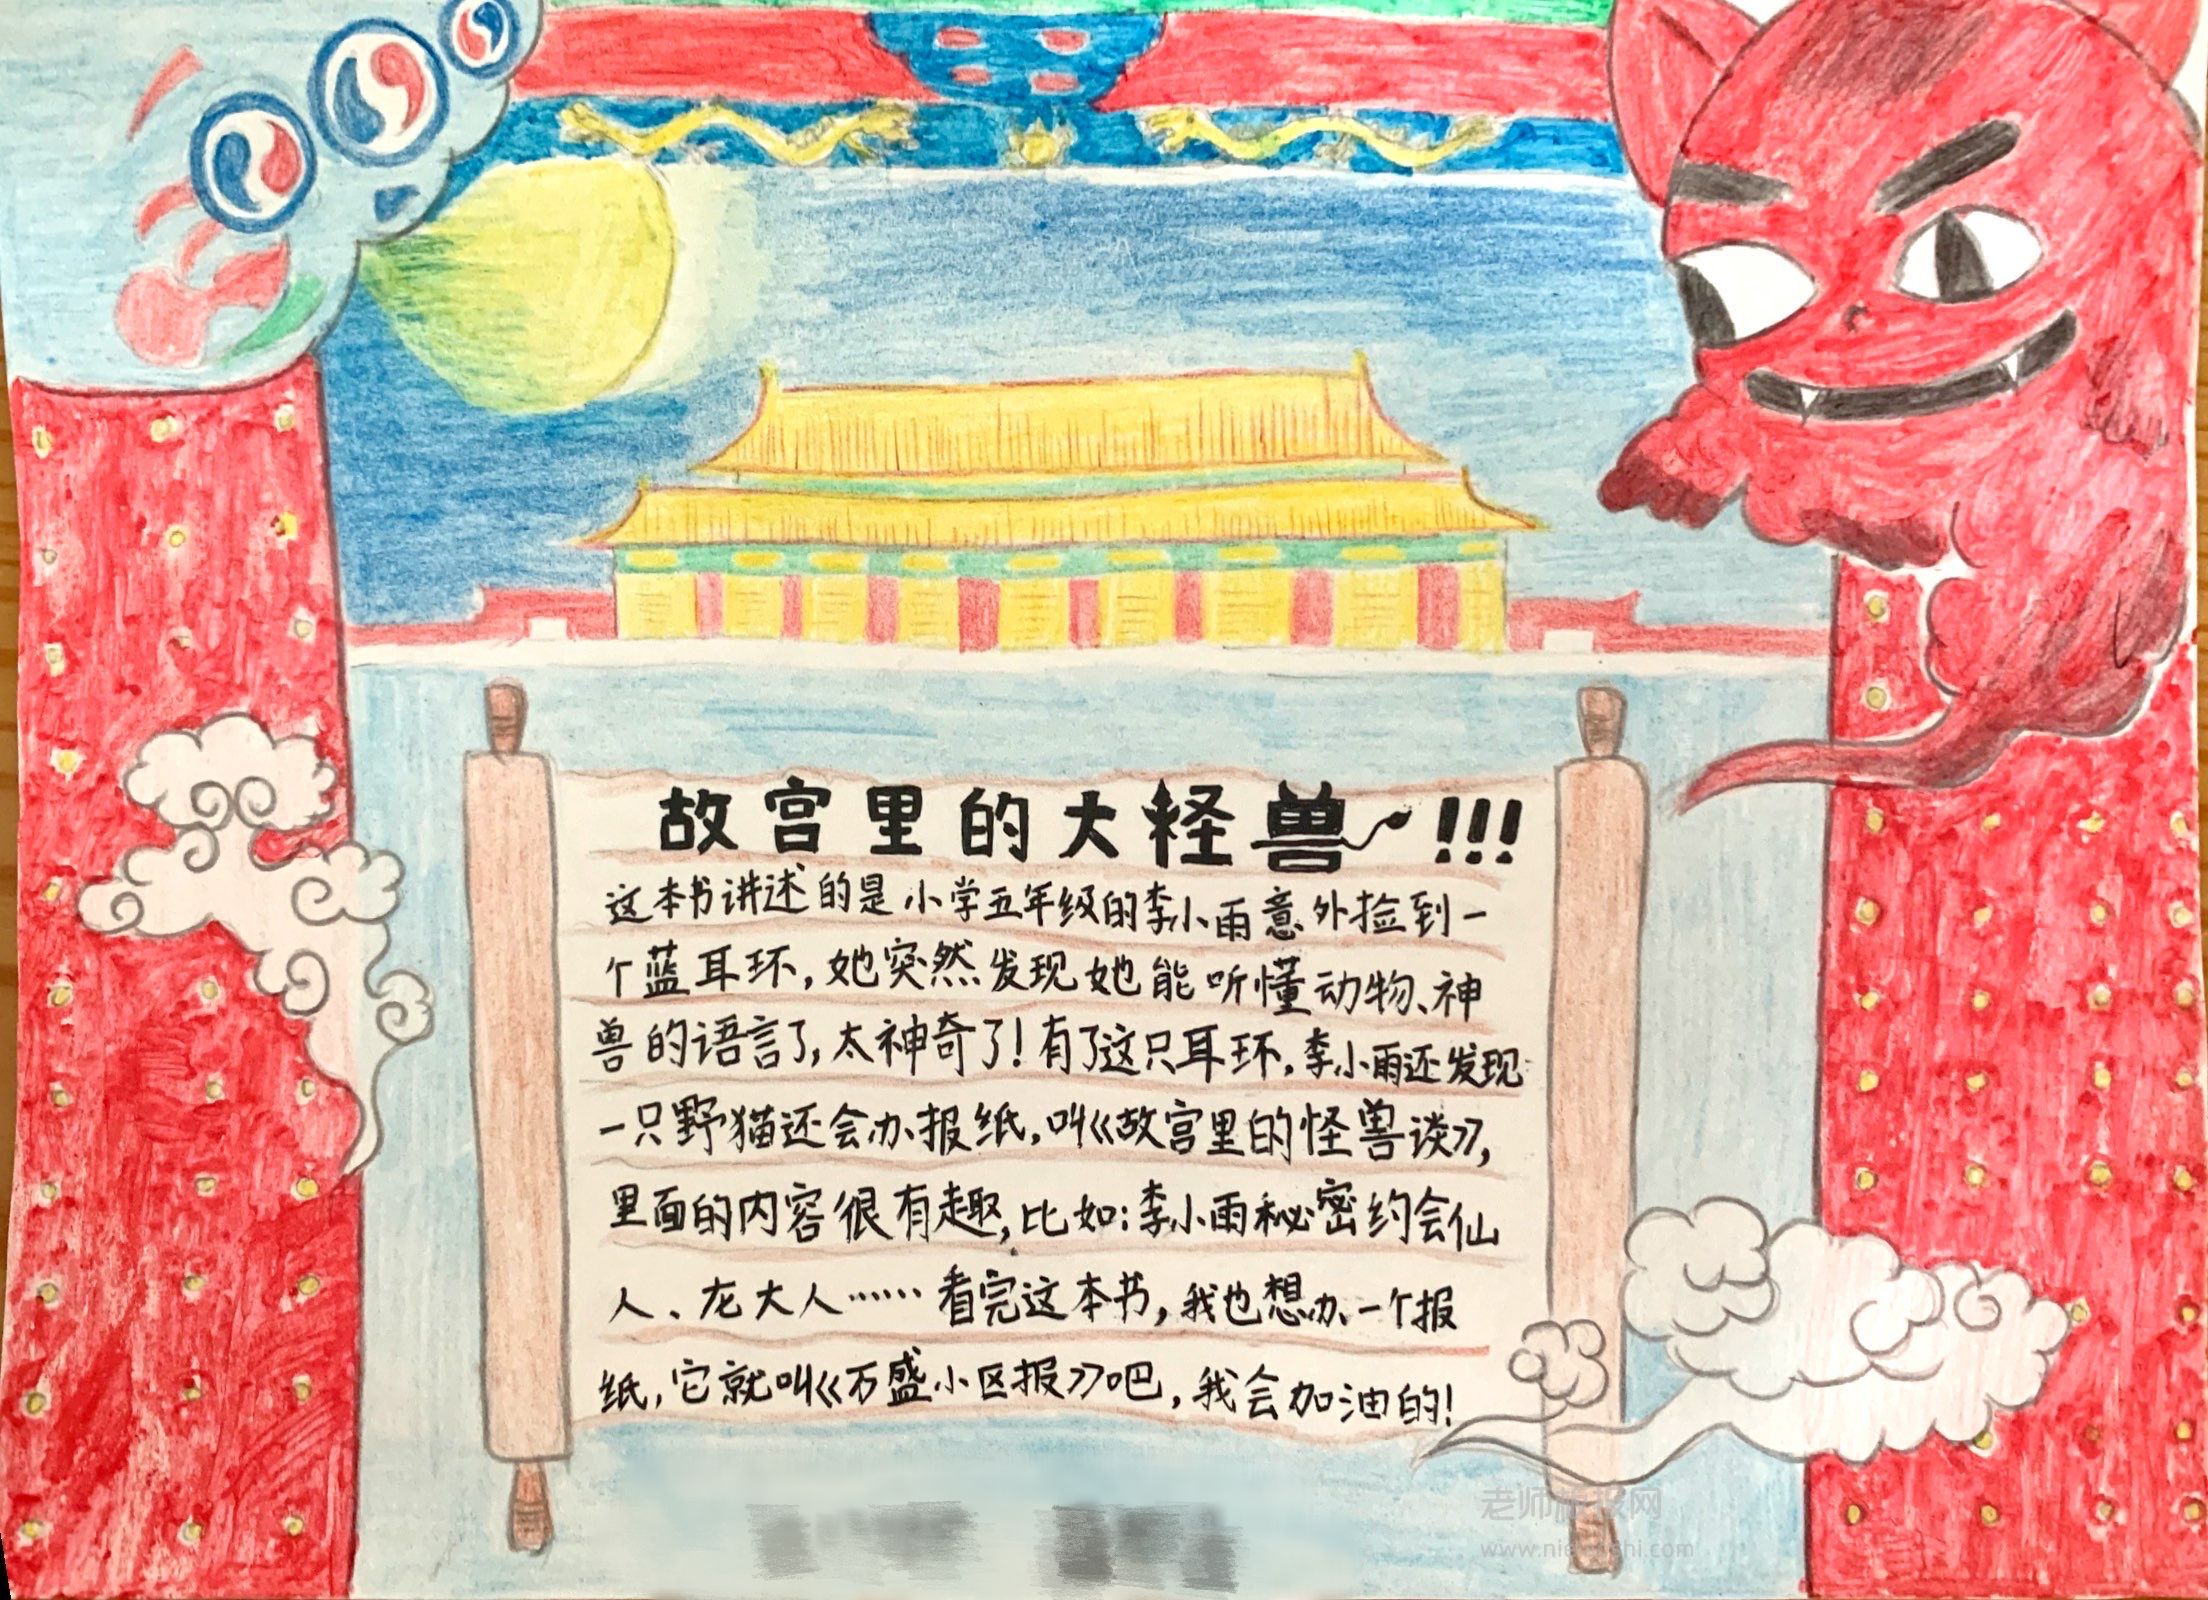 故宫里的大怪兽!!!
这本书讲述的是小学五年级的李小雨意外捡到一
个蓝耳环,她突然发现她能听懂动物、神
兽的语言了,太神奇了!有了这只耳环,李小雨还发现
一只野猫还会办报纸,叫《故宫里的怪兽谈》,
里面的内容很有趣,比如:李小雨秘密约会仙
人、龙大人……看完这本书,我也想办一个报
纸,它就叫《万盛小区报》吧,我会加油的!